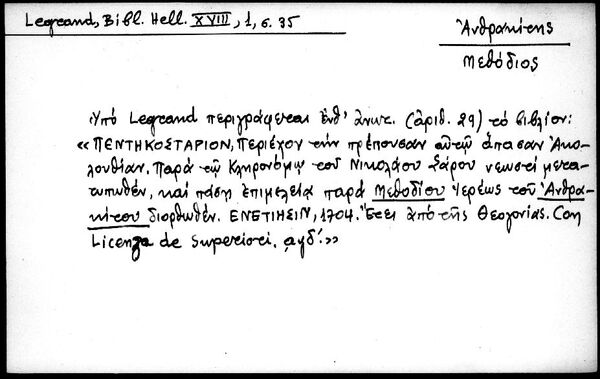 Legrand, Bibl. Hell. XVIII, 1, σ. 35
Ἀνθρακίτης
Μεθόδιος
Ὑπό Legrand περιγράφεται ἐνθ' ἀνωτ. (ἀριθ. 29) τό βιβλίον:
« ΠΕΝΤΗΚΟΣΤΑΡΙΟΝ, Περιέχον τήν πρέπουσαν αὐτῷ ἅπασαν Ἀκο-
λουθίαν. Παρά τῷ Κληρονόμῳ τοῦ Νικολάου Σάρου νεωστί μετα-
τυπωθέν, καί πάσῃ ἐπιμελείᾳ παρά Μεθοδίου Ἱερέως τοῦ Ἀνθρα-
κίτου διορθωθέν. ΕΝΕΤΙΗΣΙΝ, 1704. Ἔτει ἀπό τῆς Θεογονίας. Con
Licenza de Superiori. αψδ΄.»